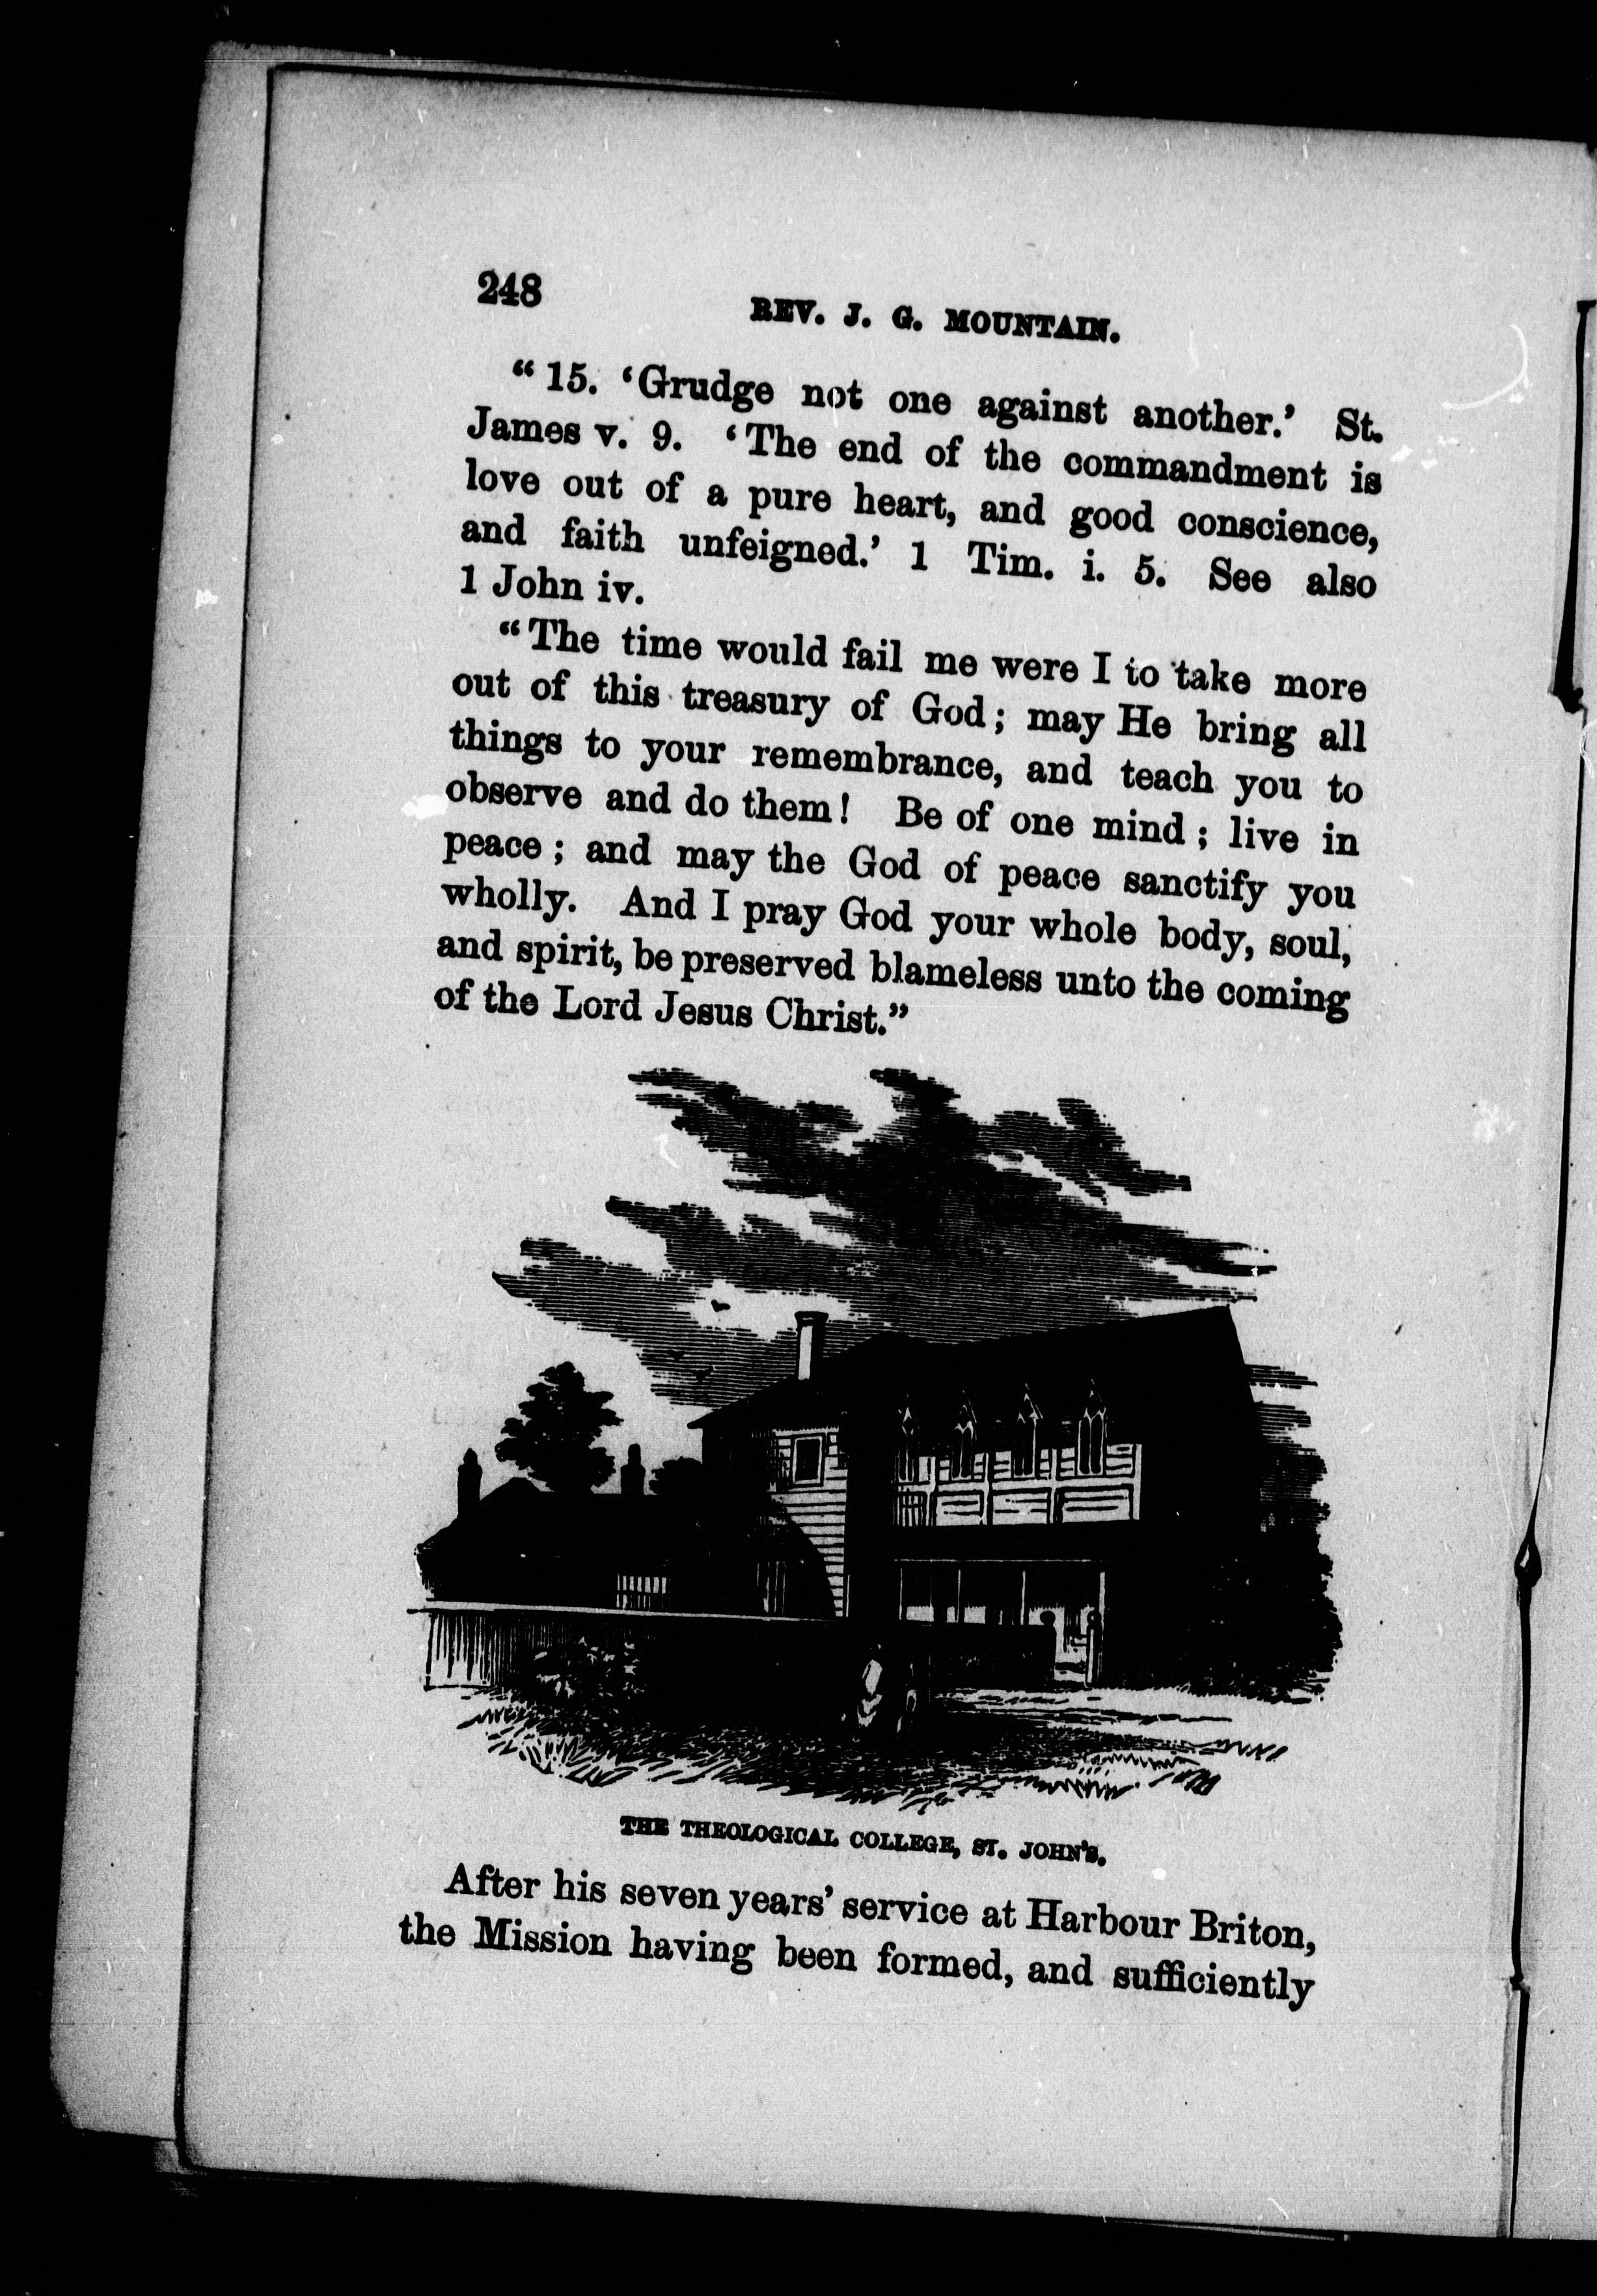 248
REV. J. G. MOUNTAIN.
“ 15. ‘Grudge not one against another.’ St.
James v. 9. ‘The end of the commandment is
love out of a pure heart, and good conscience,
and faith unfeigned.’ 1 Tim. i. 5. See also
1 John iv.
“The time would fail me were I to take more
out of this treasury of God; may He bring all
things to your remembrance, and teach you to
observe and do them! Be of one mind; live in
peace; and may the God of peace sanctify you
wholly. And I pray God your whole body, soul,
and spirit, be preserved blameless unto the coming
of the Lord Jesus Christ.”
THE THEOLOGICAL COLLEGE, ST. JOHN’S.
After his seven years’ service at Harbour Briton,
the Mission having been formed, and sufficiently